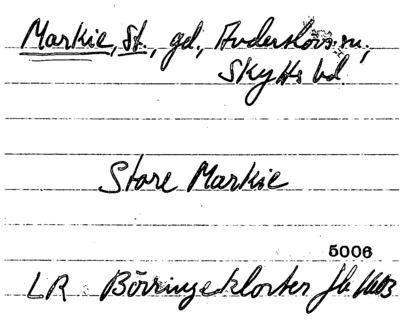 Markie, St., gd., Anderslövs sn,
Skytts hd
Store Markie
5006
LR Börringekloster Jb